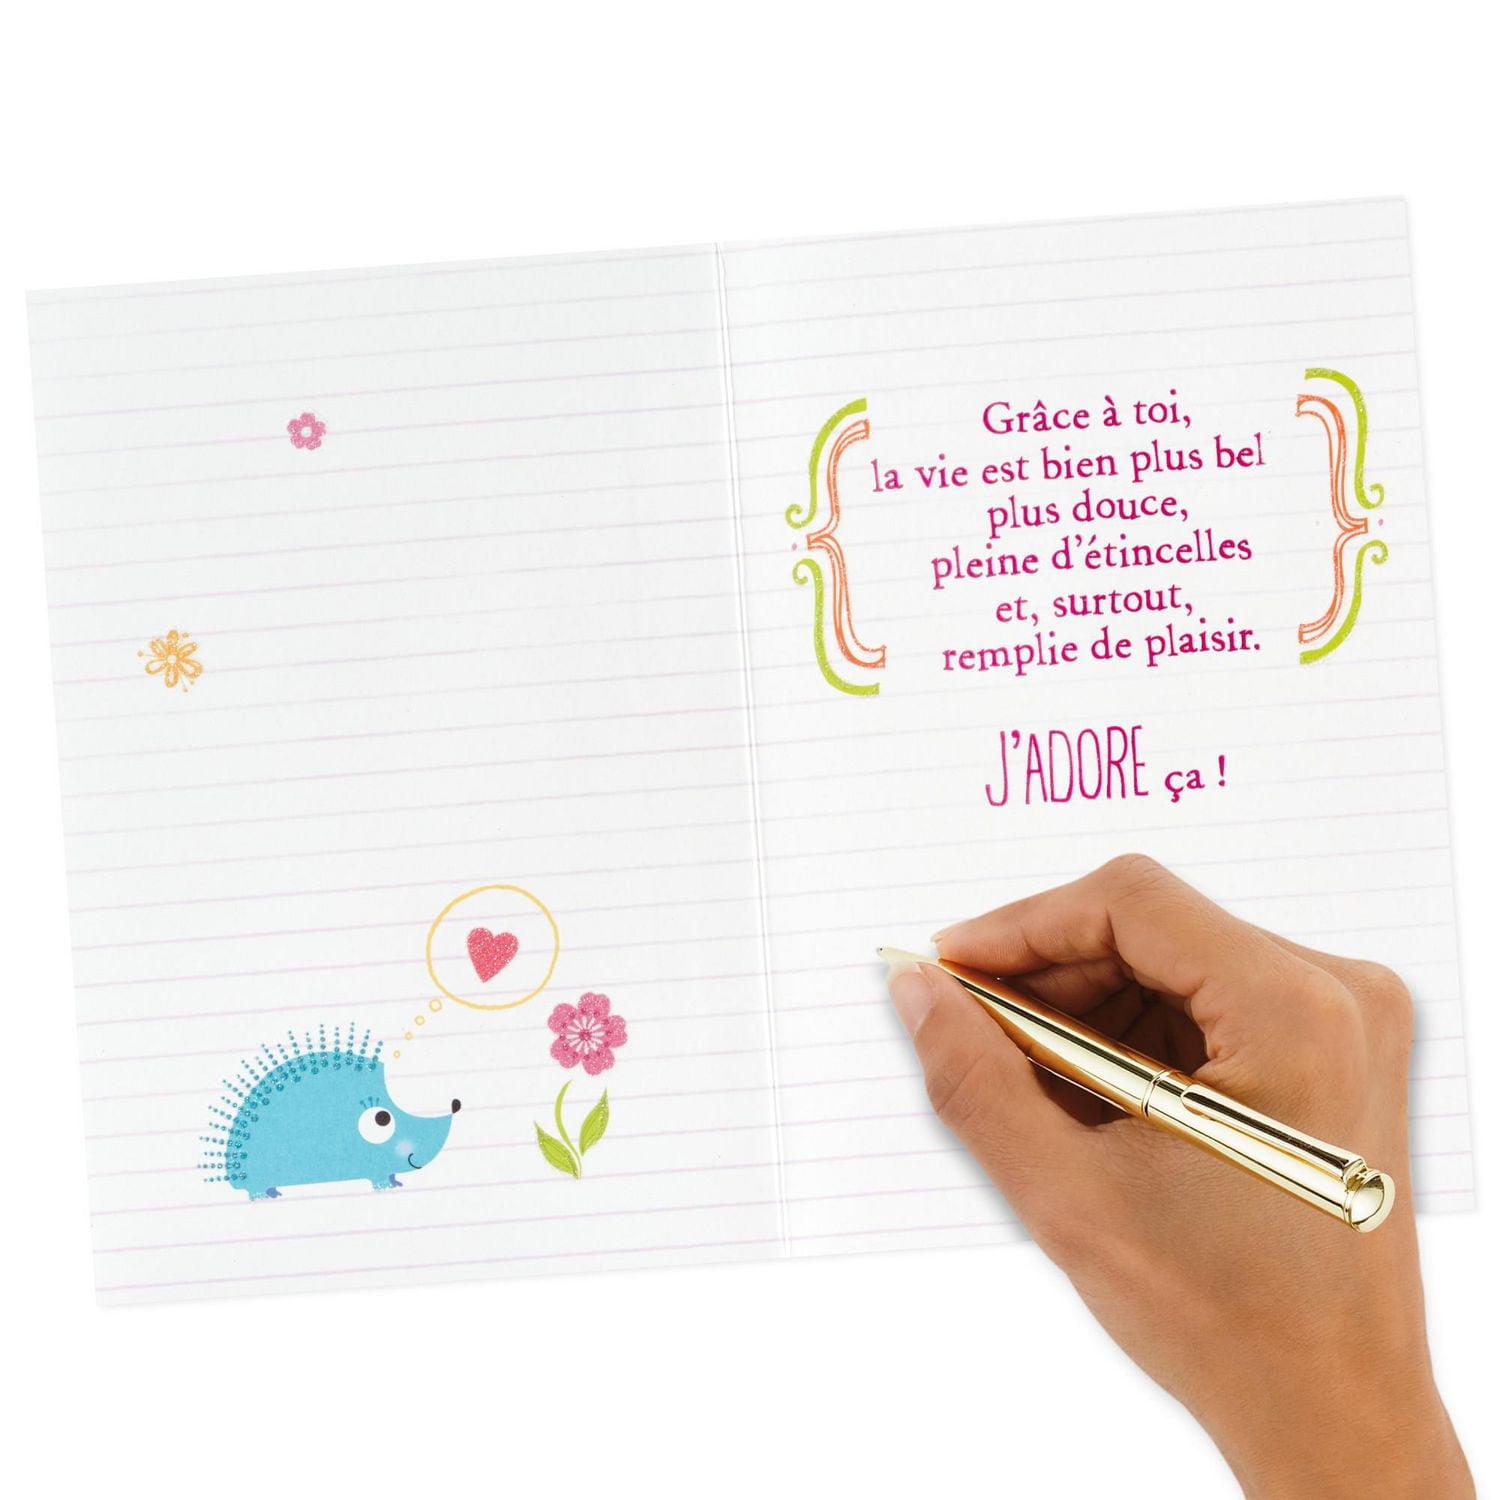 Grâce à toi,
la vie est bien plus bel
plus douce,
pleine d'étincelles
et, surtout,
remplie de plaisir.
J'ADORE ça !